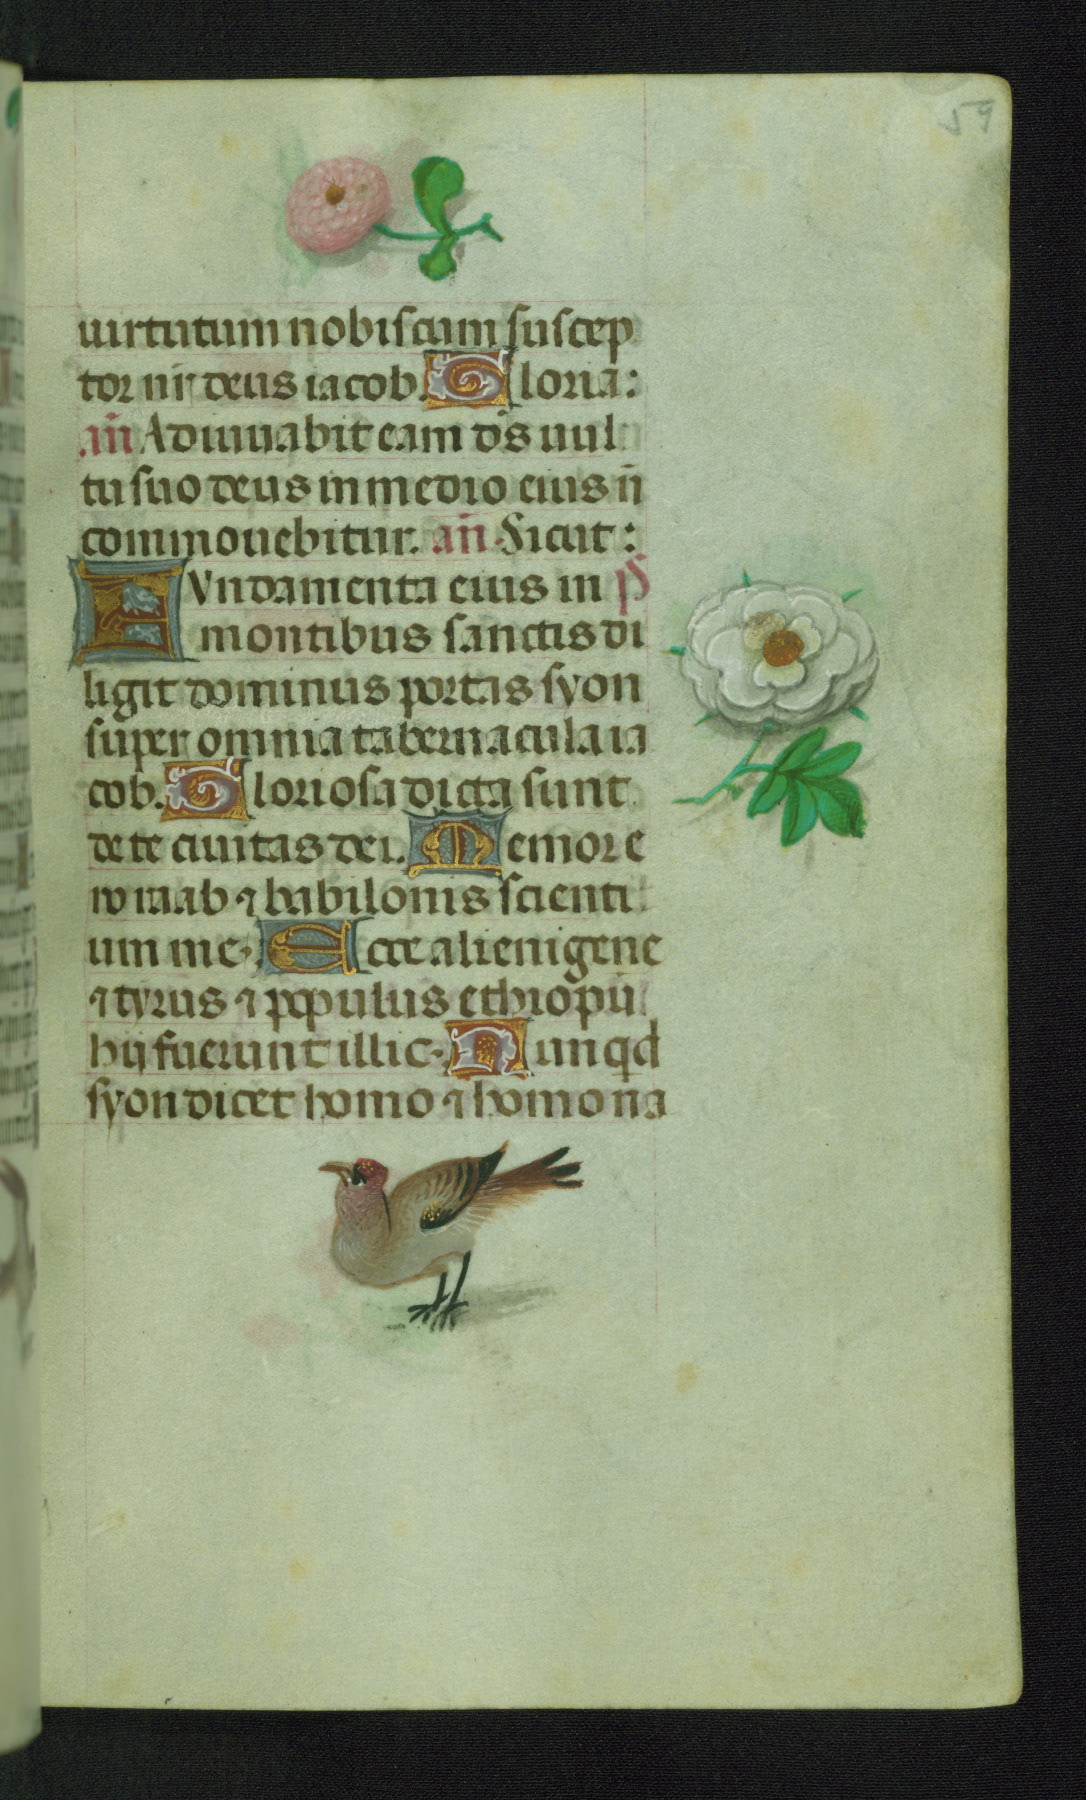 59
uirtutum nobiscum suscep
tor nr̄ deus iacob. Gloria:
.an̄ Adiuuabit eam ds̄ uul
tu suo deus in medio eius n̄
commouebitur. an̄. Sicut:
FVndamenta eius in Ps̄
montibus sanctis di
ligit dominus portas syon
super omnia tabernacula ia
cob. Gloriosa dicta sunt
de te ciuitas dei. Memor e
ro raab ⁊ babilonis scienti
um me. Ecce alienigene
⁊ tyrus ⁊ populus ethiopū
hij fuerunt illic. Nunqd
syon dicet homo ⁊ homo na